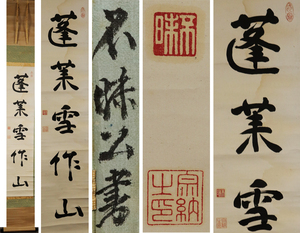 蓬莱雪作山
蓬莱雪作山
不昧公書
不昧
宗納之印
蓬莱雪